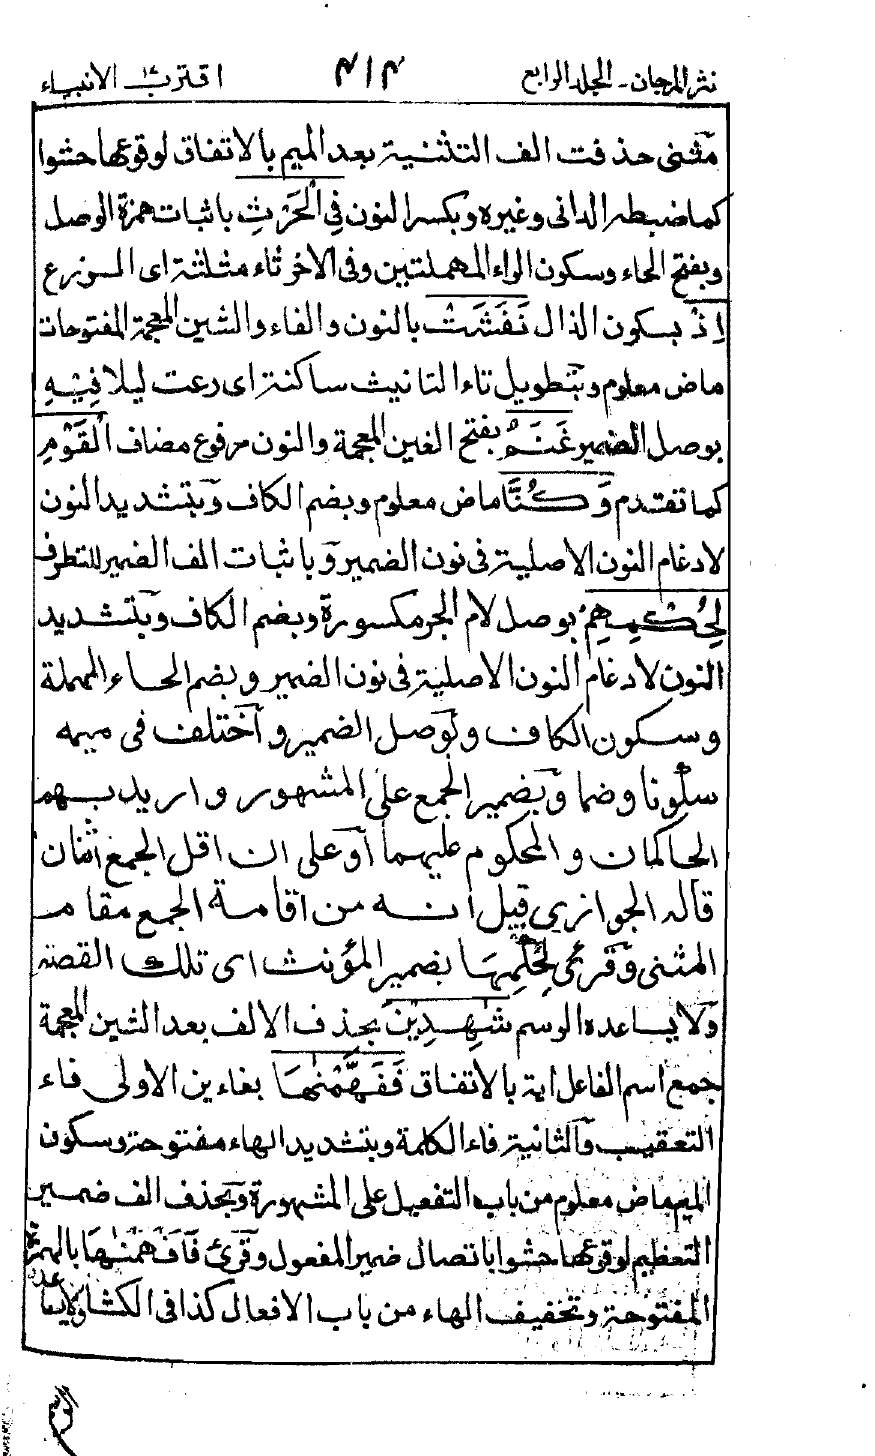 نثر المرجان - الجلد الرابع ٤١٤ اقترب ١٧ الانبياء
مثنى حذفت الف التثنية بعد الميم بالاتفاق لوقوعها حشوا
كما ضبطه الدانى وغيره وبكسر النون فِي الْحَرْثِ باثبات همزة الوصل
وبفتح الحاء وسكون الراء المهملتين وفى الاخر ثاء مثلثة اى الزرع
اِذْ بسكون الذال نَفَشَتْ بالنون والفاء والشين المعجمة المفتوحات
ماض معلوم وبتطويل تاء التانيث ساكنة اى رعت ليلا فِيْهِ
بوصل الضمير غَنَمُ بفتح الغين المعجمة والنون مرفوع مضاف الْقَوْمِ
كما تقدم وَكُنَّا ماض معلوم وبضم الكاف وبتشديد النون
لادغام النون الاصلية فى نون الضمير وباثبات الف الضمير للتطرف
لِحُكْمِهِمْ بوصل لام الجر مكسورة وبضم الكاف وبتشديد
النون لادغام النون الاصلية فى نون الضمير وبضم الحاء المهملة
وسكون الكاف وبوصل الضمير واختلف فى ميمه
سكونا وضما وبضمير الجمع على المشهور واريد بهم
الحاكمان والمحكوم عليهما او على ان اقل الجمع اثنان
قاله الجوازى قيل انه من اقامة الجمع مقام
المثنى وقرئ لِحُكْمِهَا بضمير المؤنث اى تلك القصة
ولا يساعده الرسم شٰهِدِيْنَ بحذف الالف بعد الشين المعجمة
جمع اسم الفاعل اية بالاتفاق فَفَهَّمْنٰهَا بفاءين الاولى فاء
التعقيب والثانية فاء الكلمة وبتشديد الهاء مفتوحة وسكون
الميم ماض معلوم من باب التفعيل على المشهورة وبحذف الف ضمير
التعظيم لوقوعها حشوا باتصال ضمير المفعول وقرئ فَاَفْهَمْنٰهَا بالهمزة
المفتوحة وتخفيف الهاء من باب الافعال كذا فى الكشاف ولايساعده